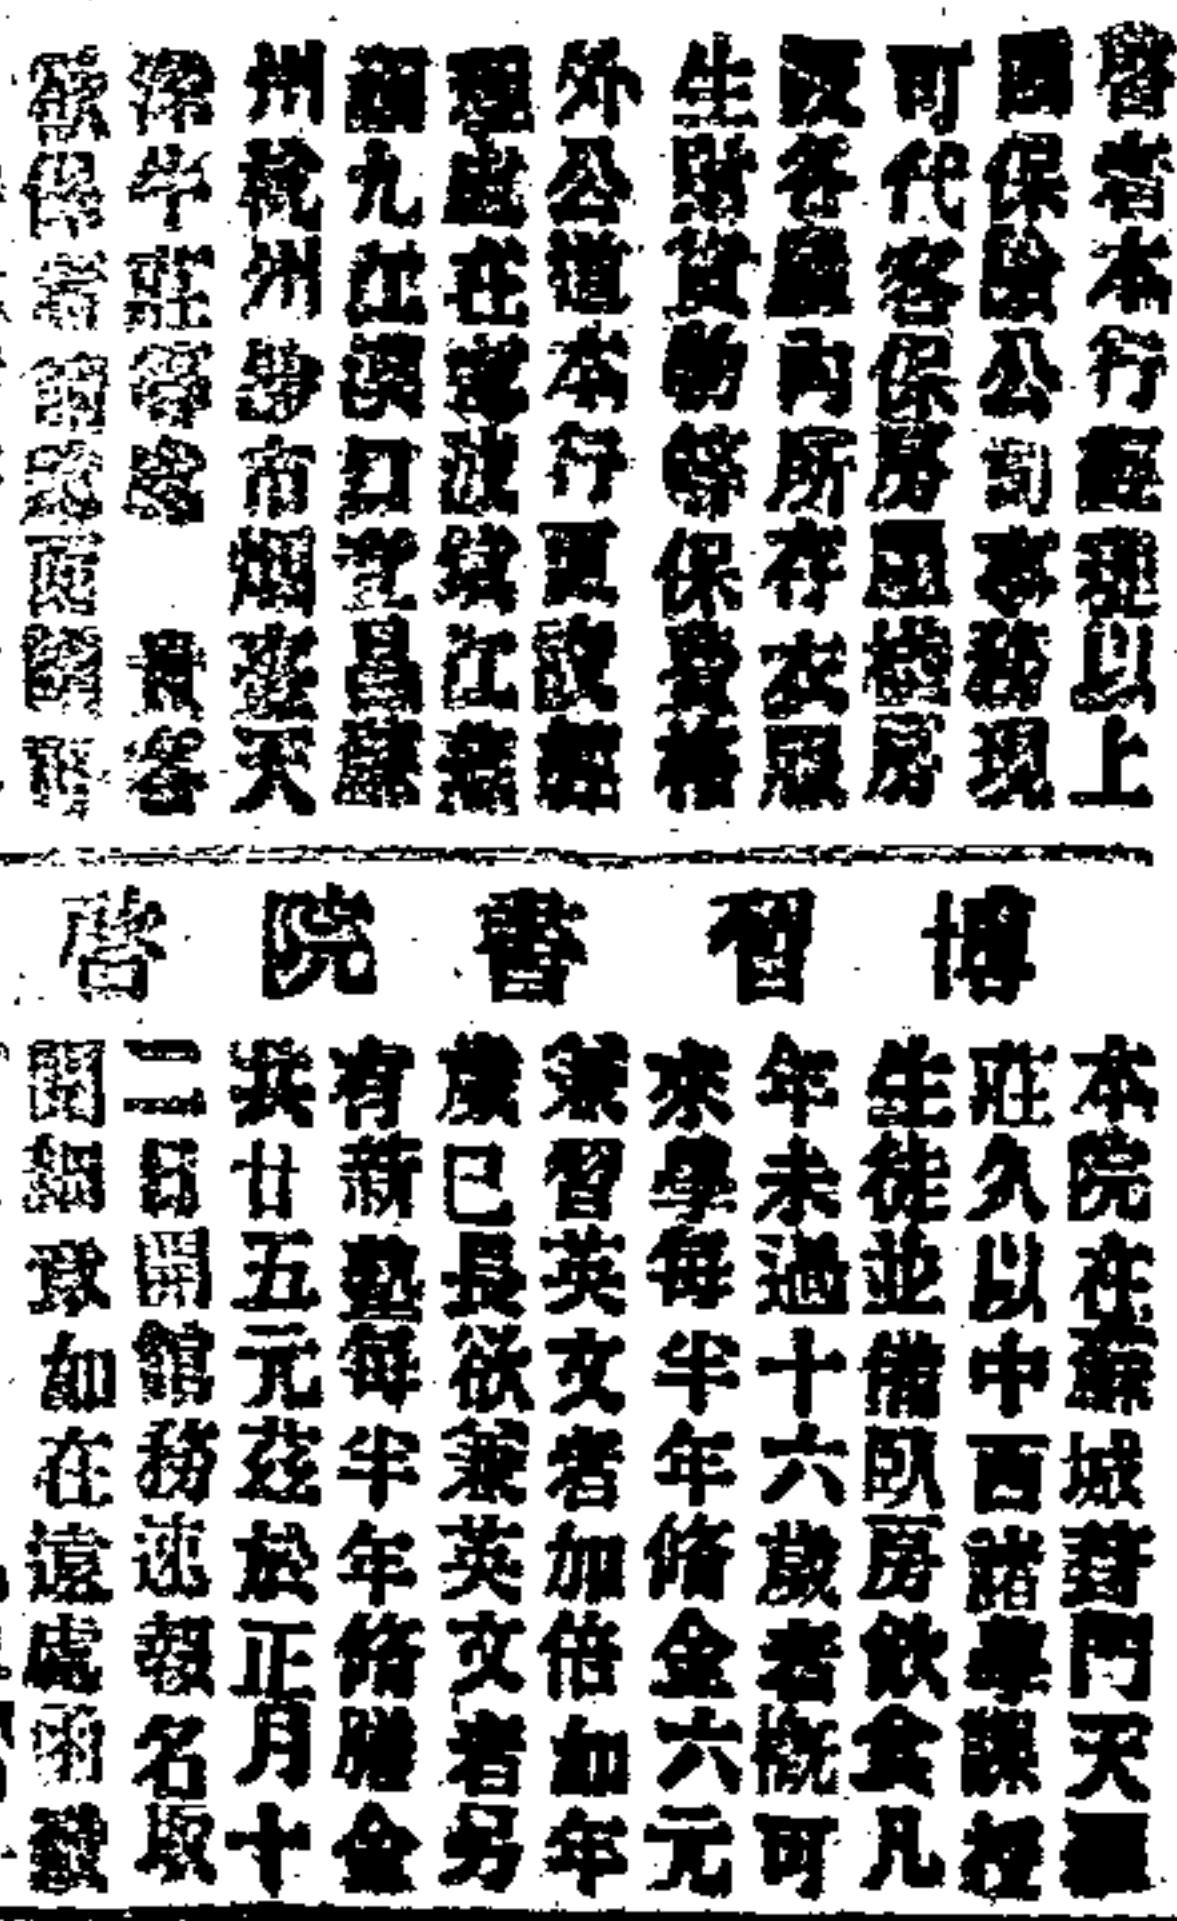 啓者本行經理以上
國保險公司事務現
可代客保房屋棧房
及各廠內所存衣服
生財貨物等保費格
外公道本行更設經
理處在寧波鎮江蕪
湖九江漢口宜昌蘇
州杭州沙市烟臺天
津牛莊等處 貴客
欲保者請
博習書院啓
本院在蘇城葑門天
莊久以中西諸學課授
生徒並備臥房飲食凡
年未過十六歲者槪可
來學每半年脩金六元
兼習英文者加倍如年
歲已長欲兼英文者另
有新塾每半年脩膳金
共廿五元茲於正月十
二日開館務速報名取
閱細章如在遠處函